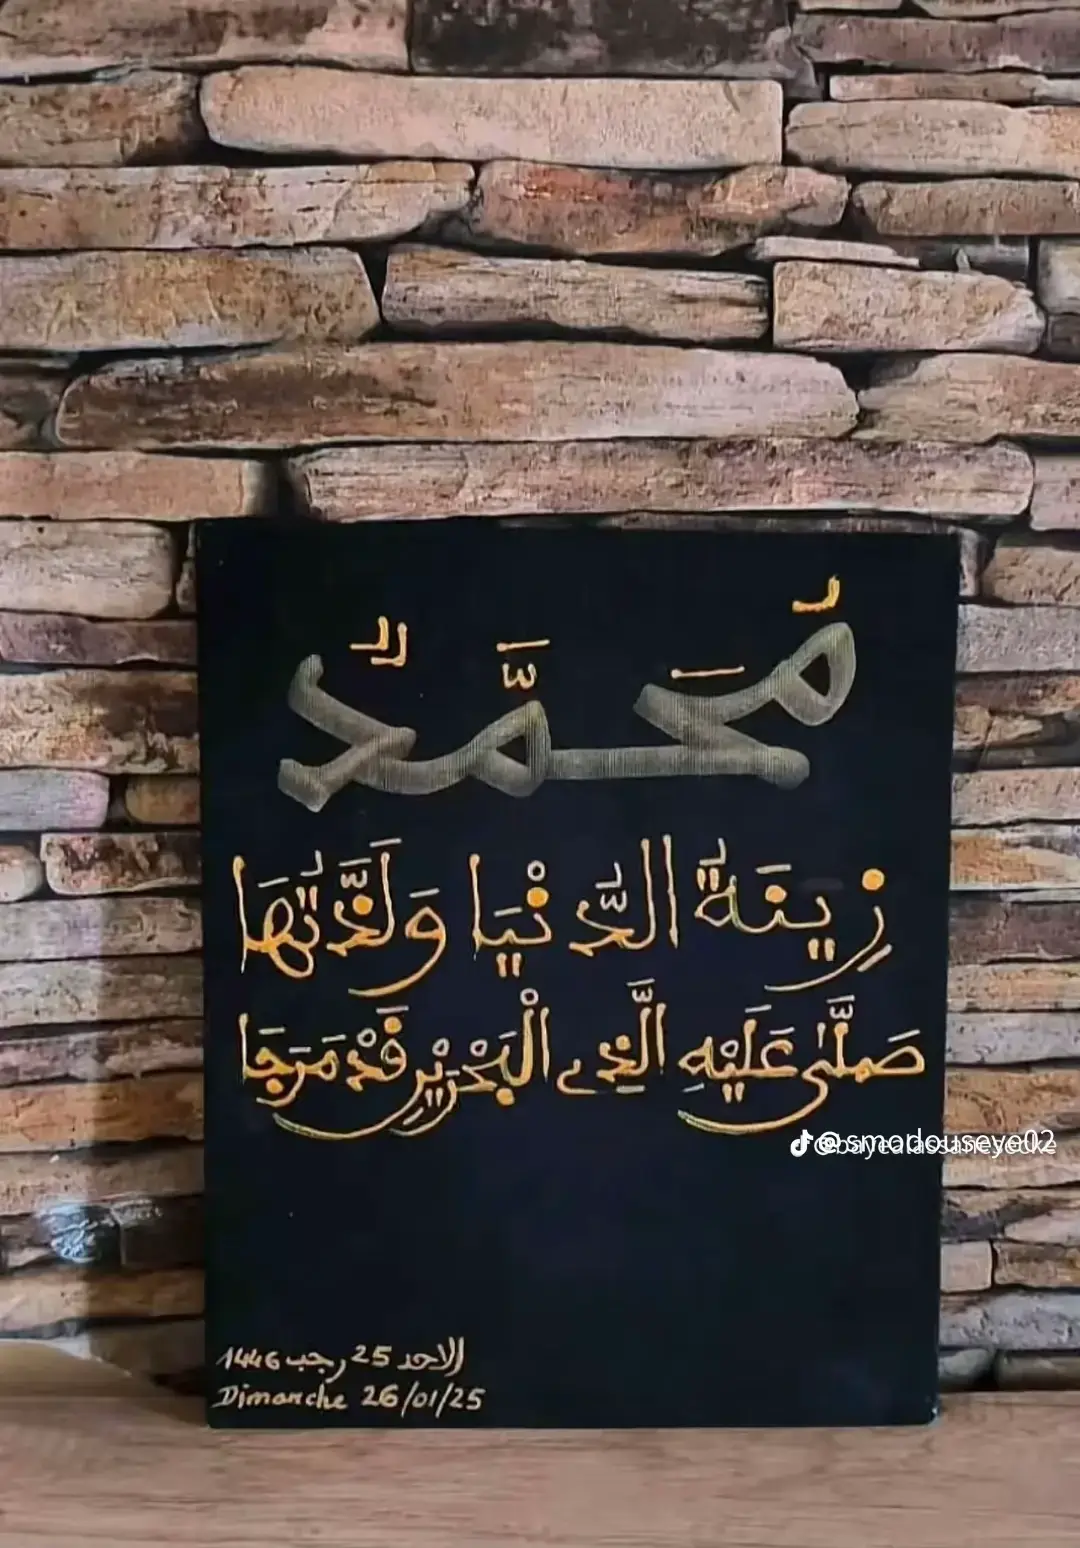 مُحَمَّدٌ
زِينَةُ الدُّنْيَا وَلَذَّتُهَا
صَلَّى عَلَيْهِ الَّذِي الْبَحْرَيْنِ قَدْ مَرَجَا
الاحد 25 رجب 1446
Dimanche 26/01/25